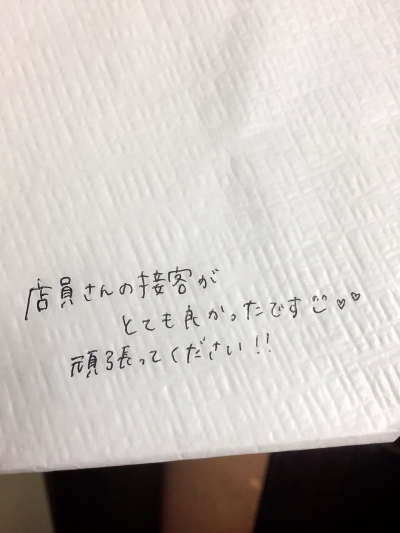 店員さんの接客が
とても良かったです😊♥♥
頑張ってください!!